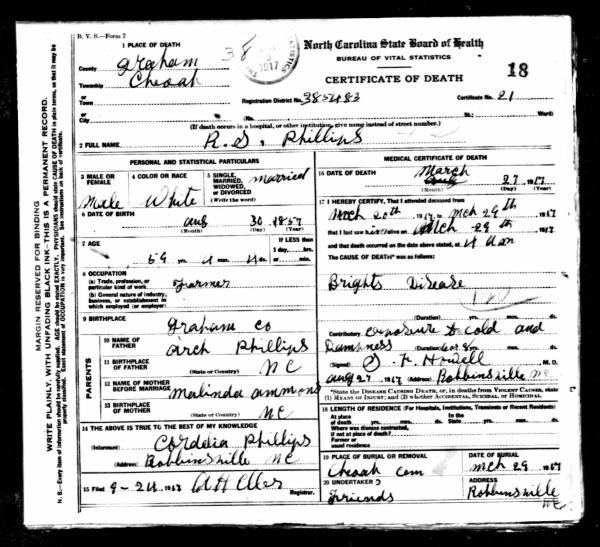 B. V. S.—Form 7
1 PLACE OF DEATH
County Graham
Township Cheoah
or
Town
or
City
38
1917
North Carolina State Board of Health
BUREAU OF VITAL STATISTICS
CERTIFICATE OF DEATH
18
Registration District No. 385483
Certificate No. 21
(No. St.; Ward)
(If death occurs in a hospital, or other institution, give name instead of street number.)
2 FULL NAME R. S. Phillips
PERSONAL AND STATISTICAL PARTICULARS
3 MALE OR FEMALE
Male
4 COLOR OR RACE
White
5 SINGLE, MARRIED, WIDOWED, OR DIVORCED (Write the word)
Married
6 DATE OF BIRTH
Aug 30 1857
(Month) (Day) (Year)
7 AGE
59 yrs. 4 mos.
If LESS than
1 day, hrs.
or min.
8 OCCUPATION
(a) Trade, profession, or particular kind of work
Farmer
(b) General nature of industry, business, or establishment in which employed (or employer)
9 BIRTHPLACE
Graham Co
PARENTS
10 NAME OF FATHER Arch Phillips
11 BIRTHPLACE OF FATHER (State or Country) NC
12 NAME OF MOTHER BEFORE MARRIAGE Malinda Ammons
13 BIRTHPLACE OF MOTHER (State or Country) NC
14 THE ABOVE IS TRUE TO THE BEST OF MY KNOWLEDGE
(Informant) Cordelia Phillips
(Address) Robbinsville NC
15 Filed 9-24 1917
Registrar.
MEDICAL CERTIFICATE OF DEATH
16 DATE OF DEATH
March 27 1917
(Month) (Day) (Year)
17 I HEREBY CERTIFY, That I attended deceased from
Mch 20th 1917 to Mch 29th 1917
that I last saw him alive on Mch 29th 1917
and that death occurred on the date above stated, at 4 am
The CAUSE OF DEATH* was as follows:
Brights Disease
(Duration) yrs. mos. ds.
Contributory exposure to cold and
Dampness (Duration) yrs. mos. ds.
(Signed) Howell M. D.
Aug 27 1917 (Address) Robbinsville NC
*State the DISEASE CAUSING DEATH, or, in deaths from VIOLENT CAUSES, state (1) MEANS OF INJURY; and (2) whether ACCIDENTAL, SUICIDAL, or HOMICIDAL.
18 LENGTH OF RESIDENCE (For Hospitals, Institutions, Transients or Recent Residents)
At place of death yrs. mos. ds. In the State yrs. mos. ds.
Where was disease contracted, if not at place of death?
Former or usual residence
19 PLACE OF BURIAL OR REMOVAL
Cheoah Cem
DATE OF BURIAL
Mch 29 1917
20 UNDERTAKER
Friends
ADDRESS
Robbinsville NC
MARGIN RESERVED FOR BINDING
WRITE PLAINLY, WITH UNFADING BLACK INK—THIS IS A PERMANENT RECORD.
N. B.—Every item of information should be carefully supplied. AGE should be stated EXACTLY. PHYSICIANS should state CAUSE OF DEATH in plain terms, so that it may be properly classified. Exact statement of OCCUPATION is very important. See instructions on back of certificate.